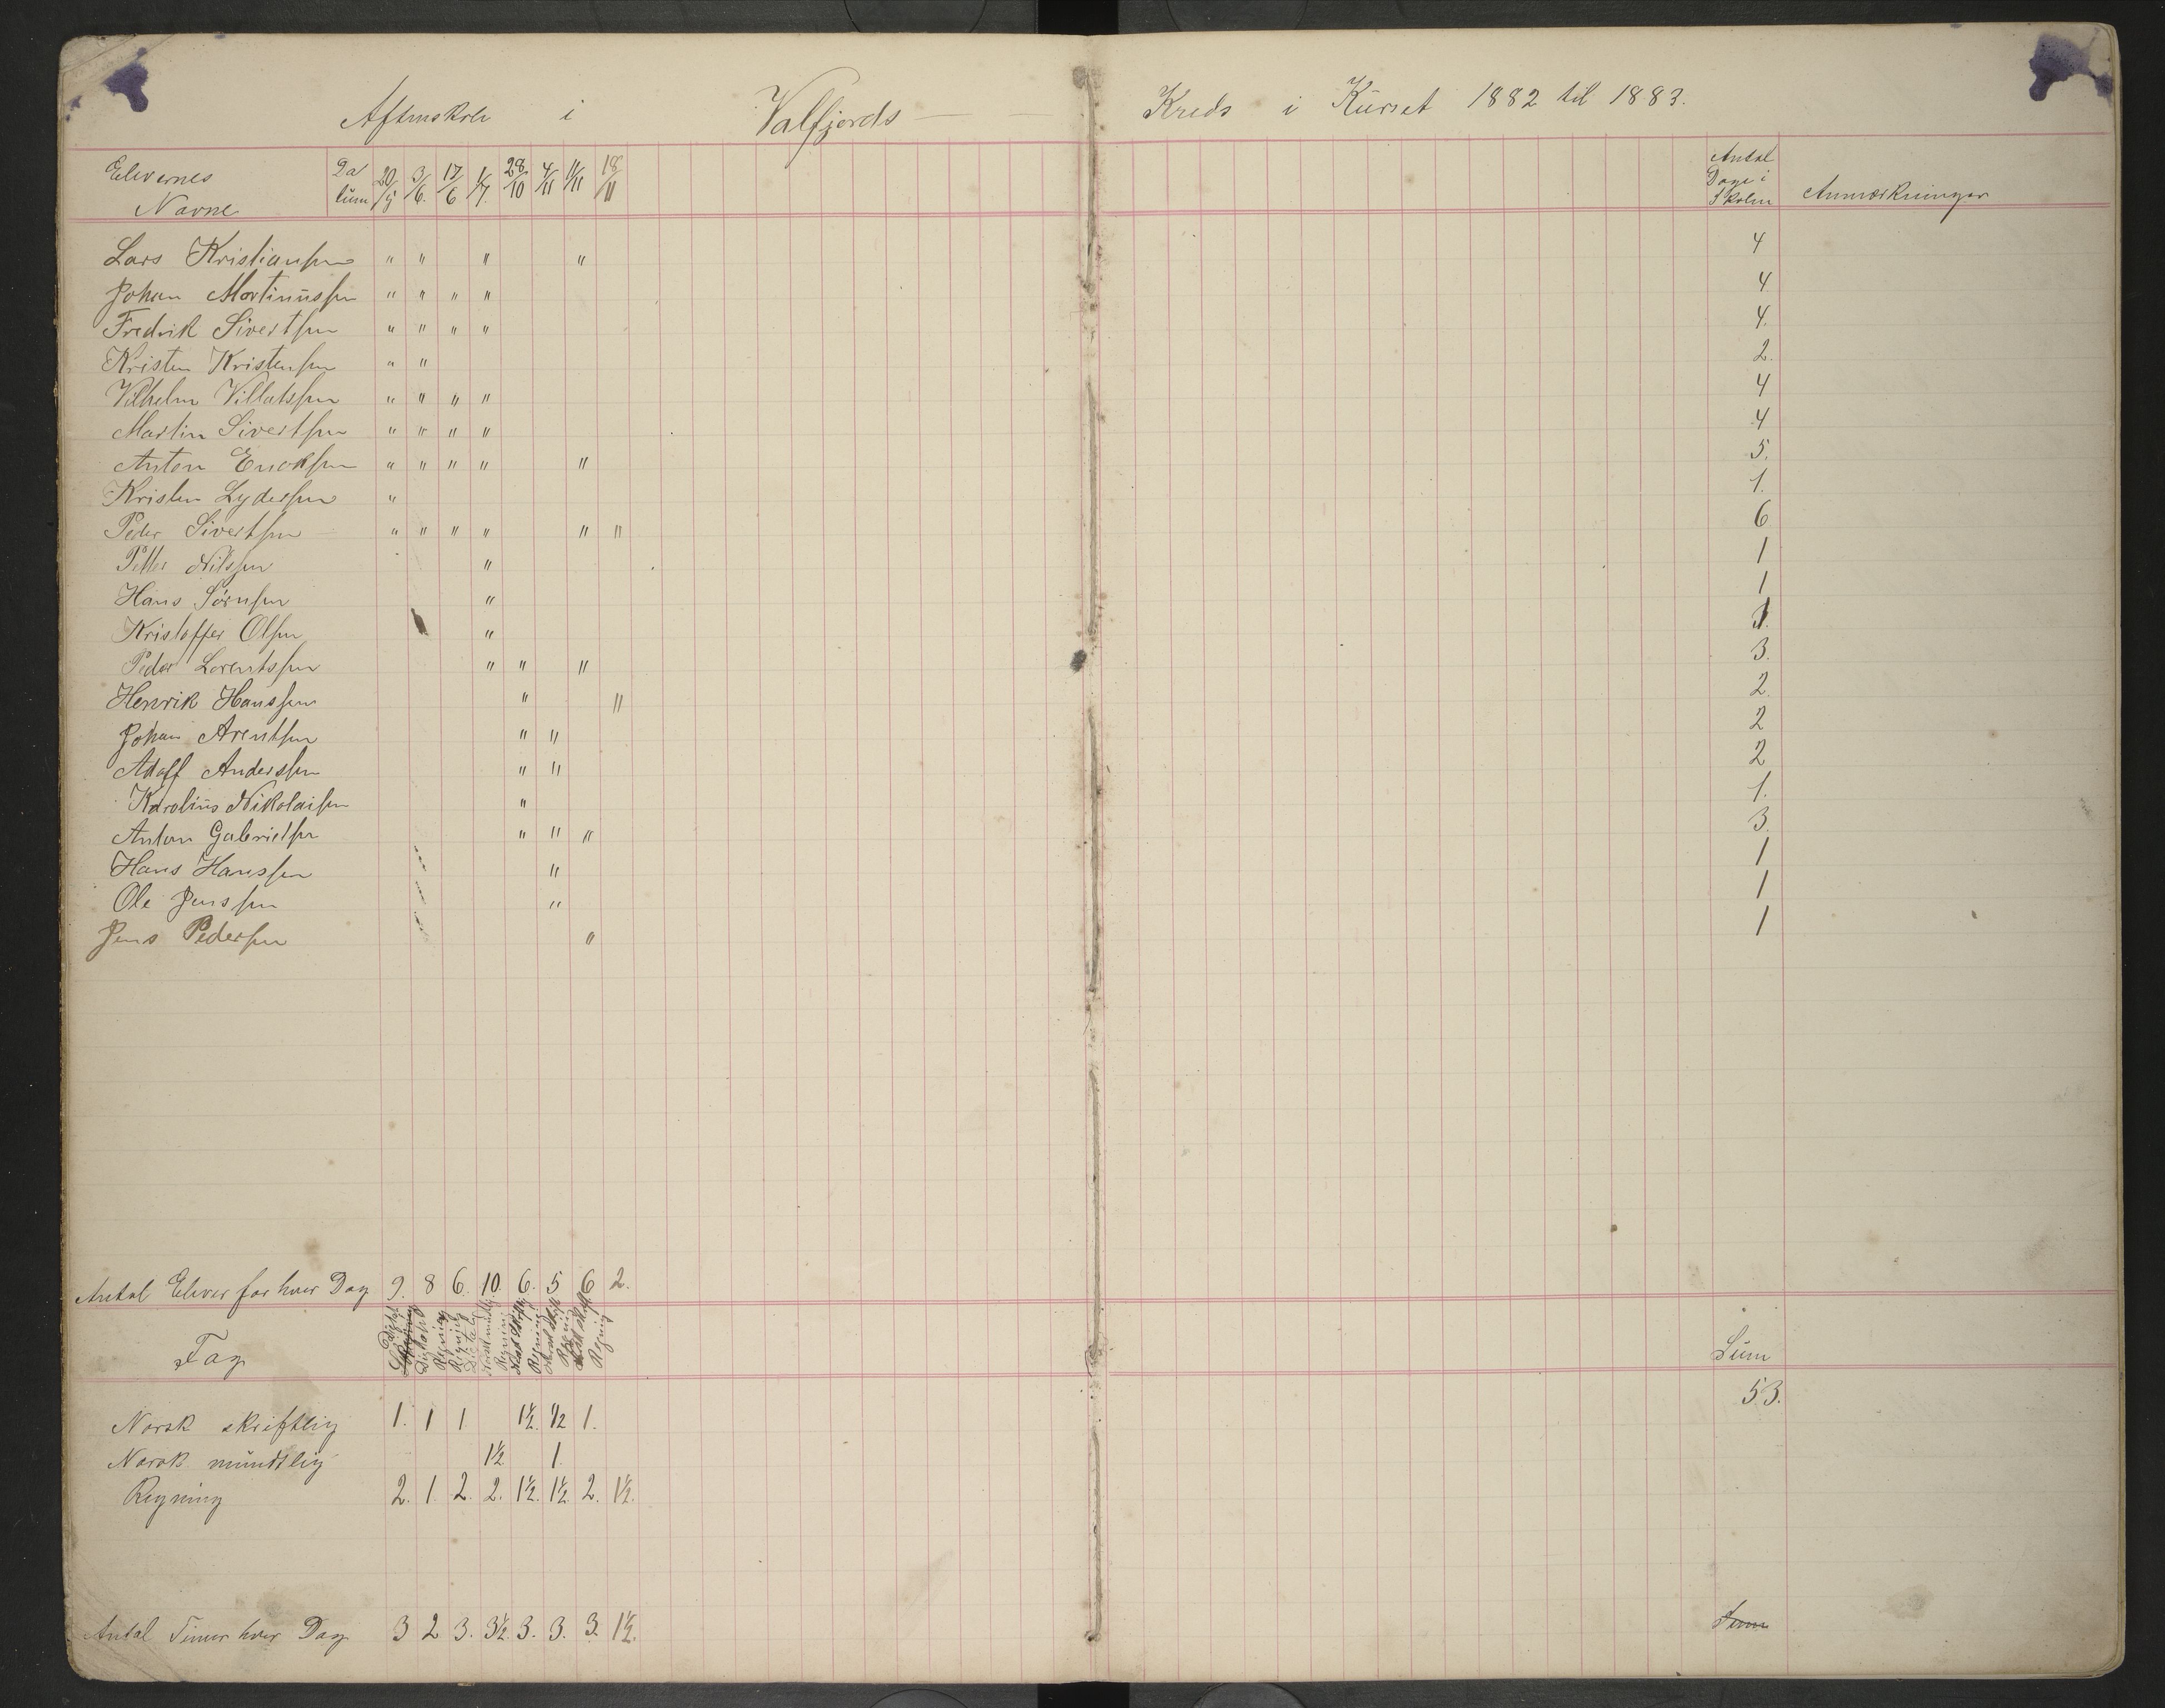 Aftenskole i Valfjords Kreds i Kurset 1882 til 1883.
Elevernes Navne Datum 20/5 3/6. 17/6 1/7. 28/10 4/11 11/11 18/11 Antal Dage i Skolen Anmærkninger
Lars Kristianssen " " " " 4
Johan Martinussen " " " " 4
Fredrik Sivertsen " " " " 4.
Kristen Kristensen " " 2.
Vilhelm Villatssen " " " " 4
Martin Sivertsen " " " " 4
Anton Enoksen " " " " " 5.
Kristen Lydersen " 1.
Peder Sivertsen " " " " " " 6
Petter Nilssen " 1
Hans Sørnsen " 1
Kristoffer Olsen " 1.
Peder Lorentssen " " " 3.
Henrik Hanssen " " 2.
Johan Arentsen " " 2
Adolf Anderssen " " 2
Karolius Nikolaisen " 1.
Anton Gabrielsen " " " 3.
Hans Hanssen " 1
Ole Jenssen " 1
Jens Pedersen " 1
Antal Elever for hver Dag 9. 8 6. 10. 6. 5 6 2.
Fag Regning Regning Regning Regning Regning Sum
53.
Norsk skriftlig 1. 1 1 1½. ½ 1.
Norsk mundtlig 1½ 1.
Regning 2. 1. 2. 2. 1½. 1½ 2. 1½.
Antal Timer hver Dag 3 2 3. 3½. 3. 3. 3. 1½. Sum